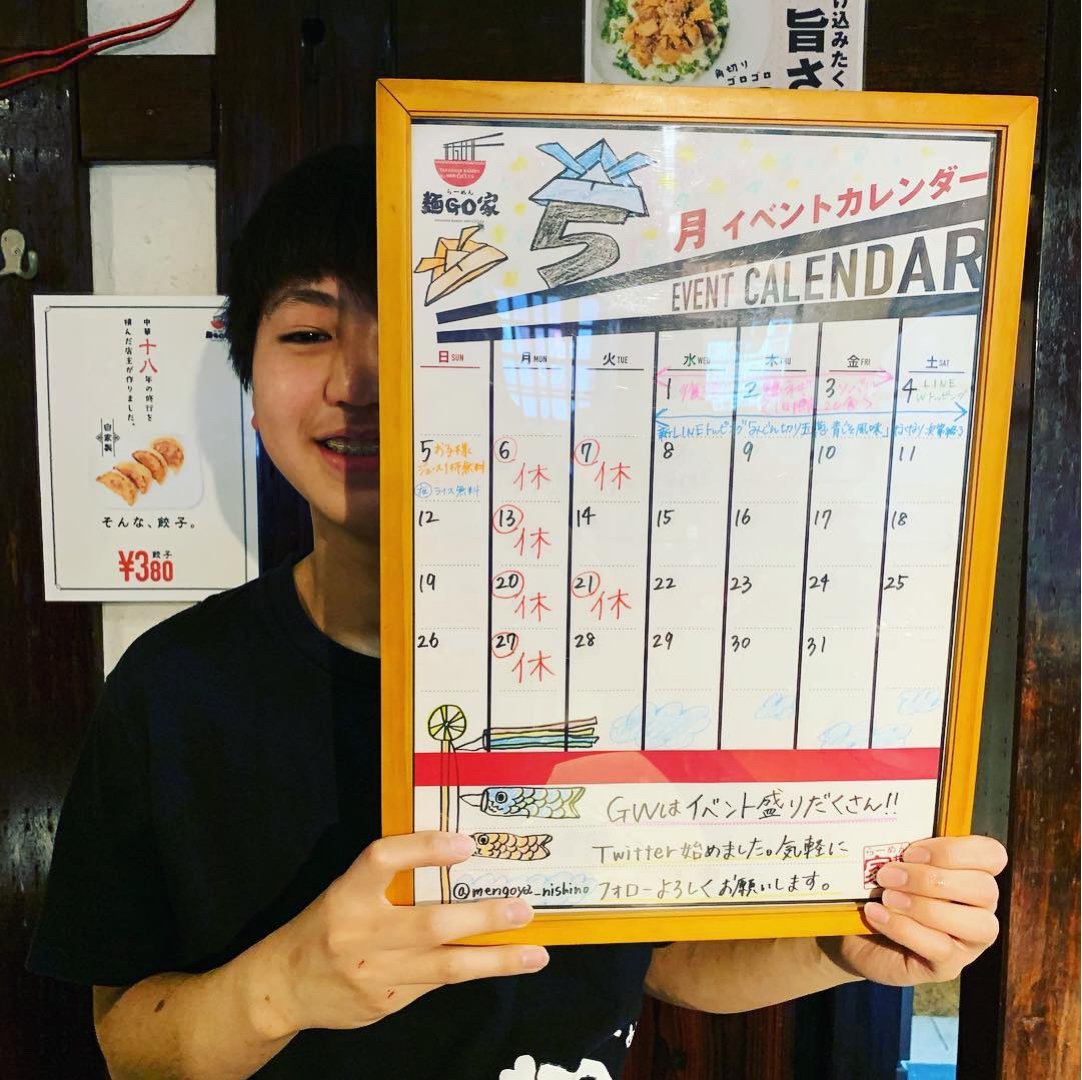 け込みたく
旨さ
角切り
ゴロゴロ
らーめん
麺GO家
5月イベントカレンダー
EVENT CALENDAR
日SUN 月MON 火TUE 水WED 木THU 金FRI 土SAT
1 2 3 4 LINE
Wトッピング
新LINEトッピング
5 お子様 6 7 8 9 10 11
ジュース1杯無料
休 休
ライス無料
12 13 14 15 16 17 18
休
19 20 21 22 23 24 25
休 休
26 27 28 29 30 31
休
GWはイベント盛りだくさん!!
Twitter始めました。気軽に
@mengoya_nishino フォローよろしくお願いします。
らーめん
家
中華十八年の修行を
積んだ店主が作りました。
自家製
そんな、餃子。
餃子
¥380